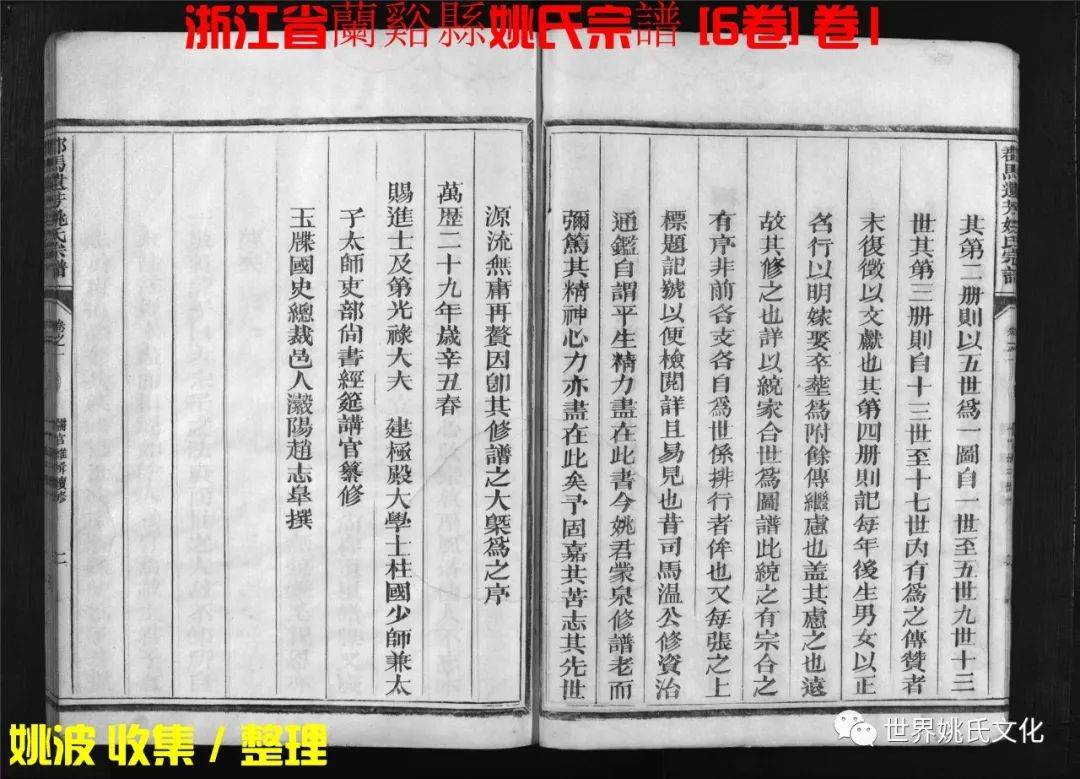 浙江省蘭谿縣姚氏宗譜 [6卷] 卷1
其第二册則以五世爲一圖自一世至五世九世十三
世其第三册則自十三世至十七世内有爲之傳贊者
末復徵以文獻也其第四册則記每年後生男女以正
名行以明嫁娶卒塟爲附餘傳繼慮也盖其慮之也遠
故其修之也詳以統家合世爲圖譜此統之有宗合之
有序非前各支各自爲世係排行者侔也又每張之上
標題記號以便檢閱詳且易見也昔司馬温公修資治
通鑑自謂平生精力盡在此書今姚君蒙泉修譜老而
彌篤其精神心力亦盡在此矣予固嘉其苦志其先世
源流無庸再贅因卽其修譜之大槩爲之序
萬歷二十九年歲辛丑春
賜進士及第光祿大夫 建極殿大學士柱國少師兼太
子太師吏部尙書經筵講官纂修
玉牒國史總裁邑人瀫陽趙志皋撰
姚氏宗譜
卷之一
二
姚波 收集 / 整理
世界姚氏文化